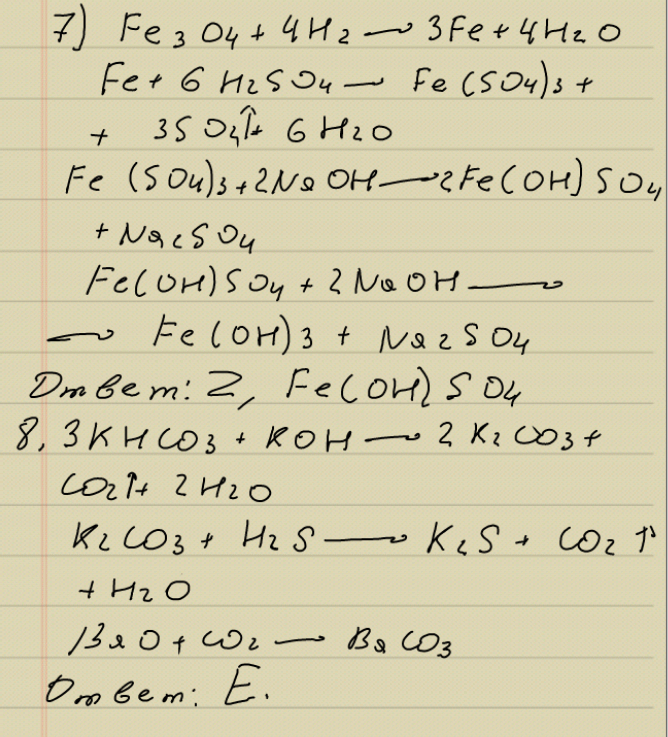 7) Fe3O4 + 4H2 → 3Fe + 4H2O
Fe + 6H2SO4 → Fe(SO4)3 +
+ 3SO2↑ + 6H2O
Fe(SO4)3 + 2NaOH → 2Fe(OH)SO4
+ Na2SO4
Fe(OH)SO4 + 2NaOH →
→ Fe(OH)3 + Na2SO4
Ответ: Z, Fe(OH)SO4
8, 3KHCO3 + KOH → 2K2CO3 +
CO2↑ + 2H2O
K2CO3 + H2S → K2S + CO2↑
+ H2O
BaO + CO2 → BaCO3
Ответ: E.